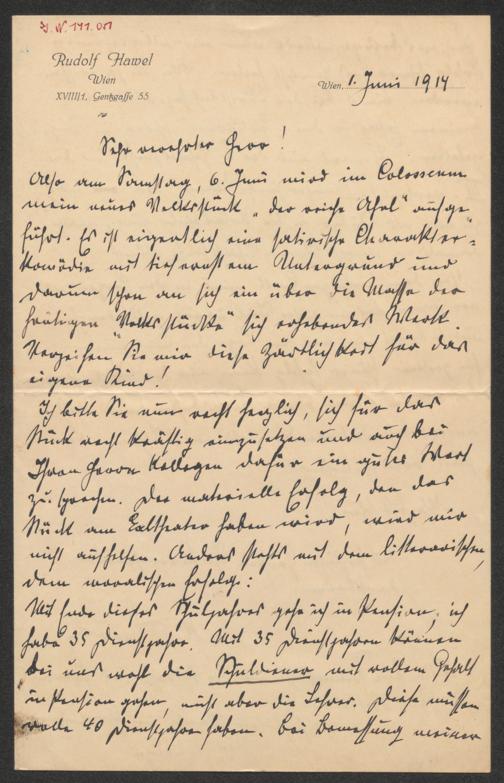 J. N. 171.051
Rudolf Hawel
Wien
XVIII/1, Gentzgasse 55
Wien, 1. Juni 1914
Sehr verehrter Herr!
Also am Samstag, 6. Juni wird im Colosseum
mein neues Volksstück „der reiche Ahnl" aufge-
führt. Es ist eigentlich eine satirische Charakter-
komödie mit tiefernstem Untergrund und
darum schon an sich ein über die Masse der
heutigen „Volksstücke" sich erhebendes Werk.
Verzeihen Sie mir diese Zärtlichkeit für das
eigene Kind!
Ich bitte Sie nun recht herzlich, sich für das
Stück recht kräftig einzusetzen und auch bei
Ihren Herren Kollegen dafür ein gutes Wort
zu sprechen. Der materielle Erfolg, den das
Stück am haben wird, wird mir
nicht aufhelfen. Anders stehts mit dem litterarischen,
dem moralischen Erfolge:
Mit Ende dieses Schuljahres gehe ich in Pension; ich
habe 35 Dienstjahre. Mit 35 Dienstjahren können
bei uns wohl die Schuldiener mit vollem Gehalt
in Pension gehen, nicht aber die Lehrer. Diese müssen
volle 40 Dienstjahre haben. Bei Bemessung meiner